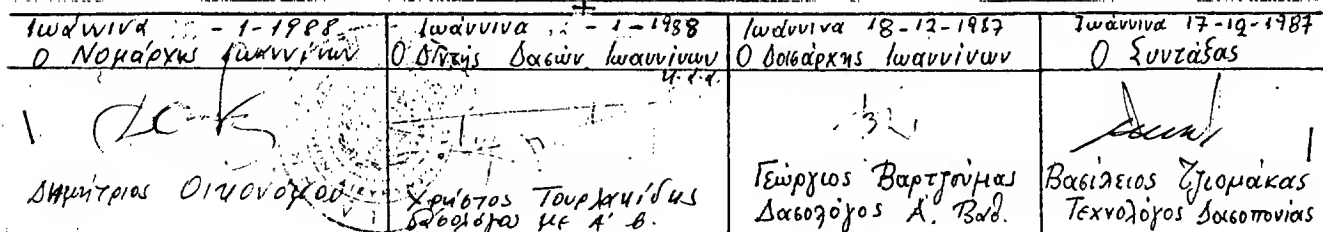 Ιωάννινα - 1-1988
Ο Νομάρχης Ιωαννίνων
Δημήτριος Οικονόμου
Ιωάννινα - 1-1988
Ο Δ/ντής Δασών Ιωαννίνων
Χρήστος Τουρλακίδης
δασολόγος με Α' β.
Ιωάννινα 18-12-1987
Ο Δασάρχης Ιωαννίνων
Γεώργιος Βαρτζούμας
Δασολόγος Α. Βαθ.
Ιωάννινα 17-12-1987
Ο Συντάξας
Βασίλειος Τζιομάκας
Τεχνολόγος Δασοπονίας